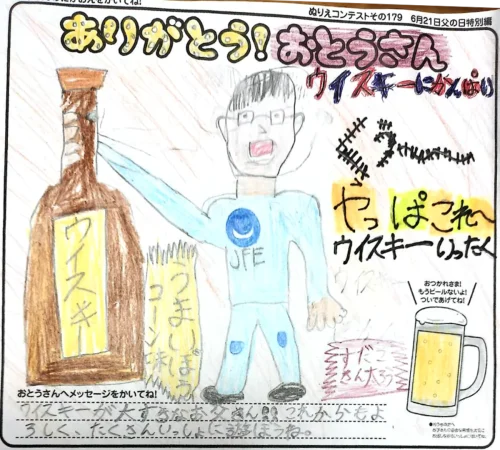 ぬりえコンテストその179 6月21日父の日特別編
ありがとう!おとうさん
ウイスキーにかんぱい
やっぱこれ〜
ウイスキーいったく
ウイスキー
うまいぼう
コーン味
JFE
すだこ
さん太ろう
おつかれさま!
もうビールないよ!
ついであげてね!
おとうさんへメッセージをかいてね!
ウイスキーが大すきなお父さん!!これからもよ
ろしく、たくさんいっしょに